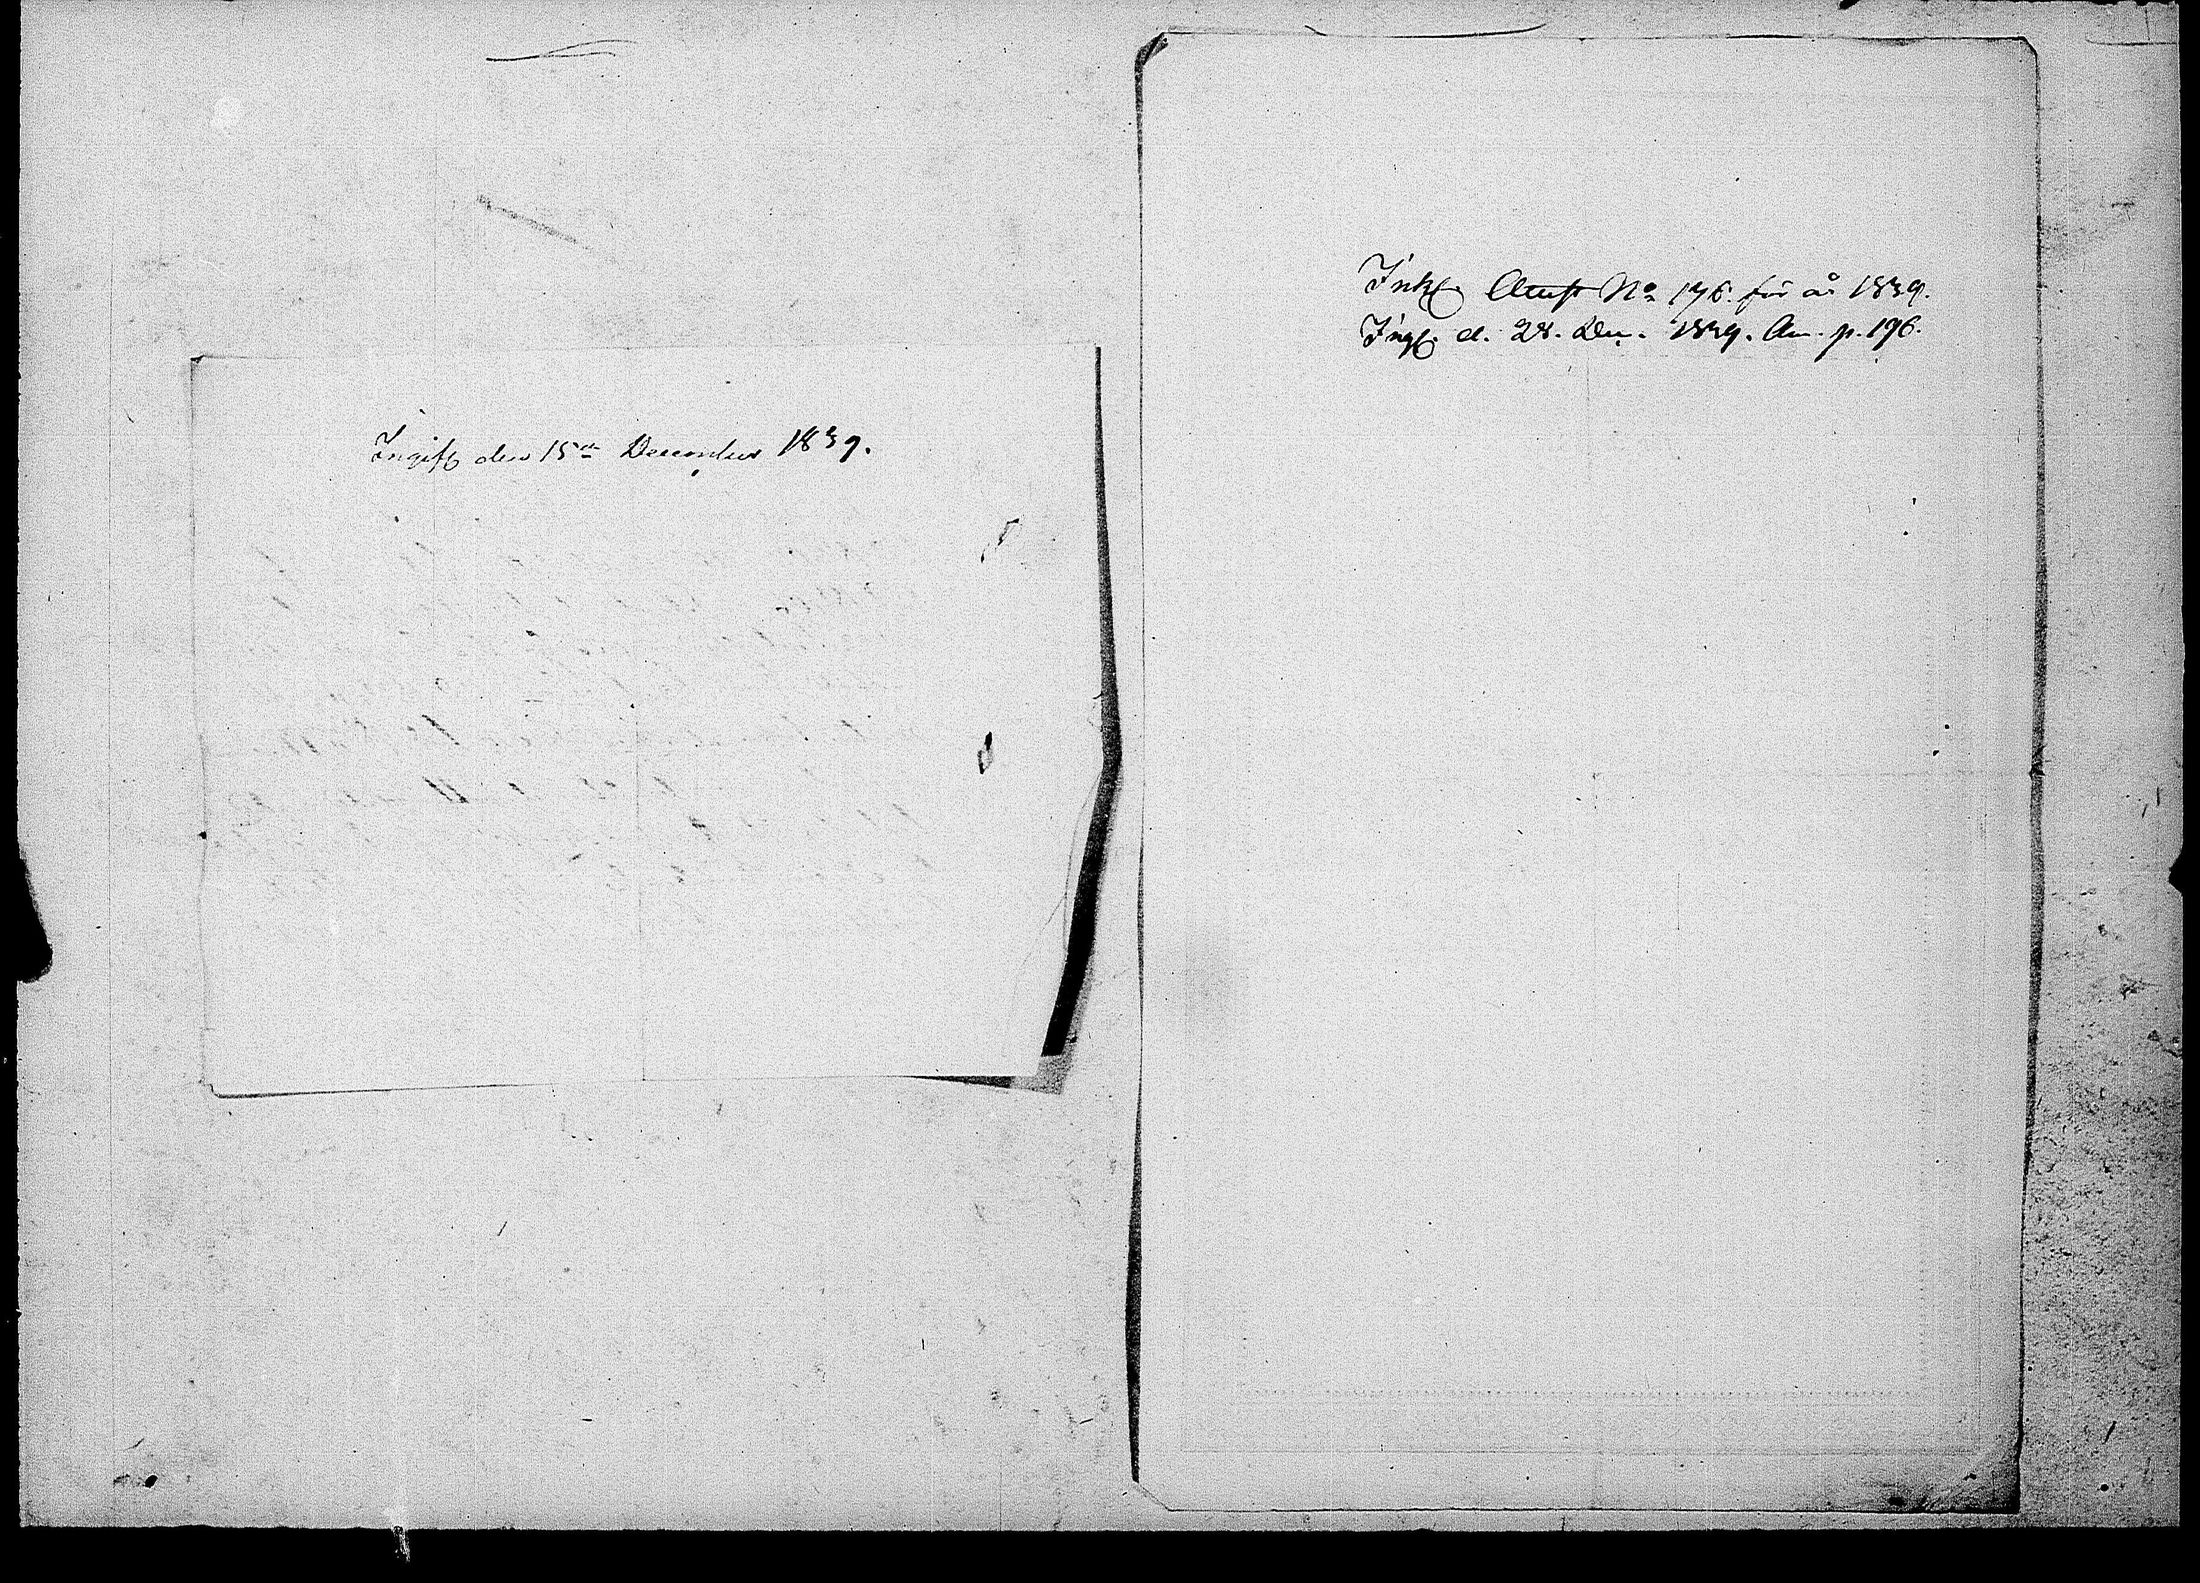 Ingift den 15de December 1839.
Inkf. Attest No 196. för år 1839.
Ingf. d. 28. Dec. 1839. An. p. 196.